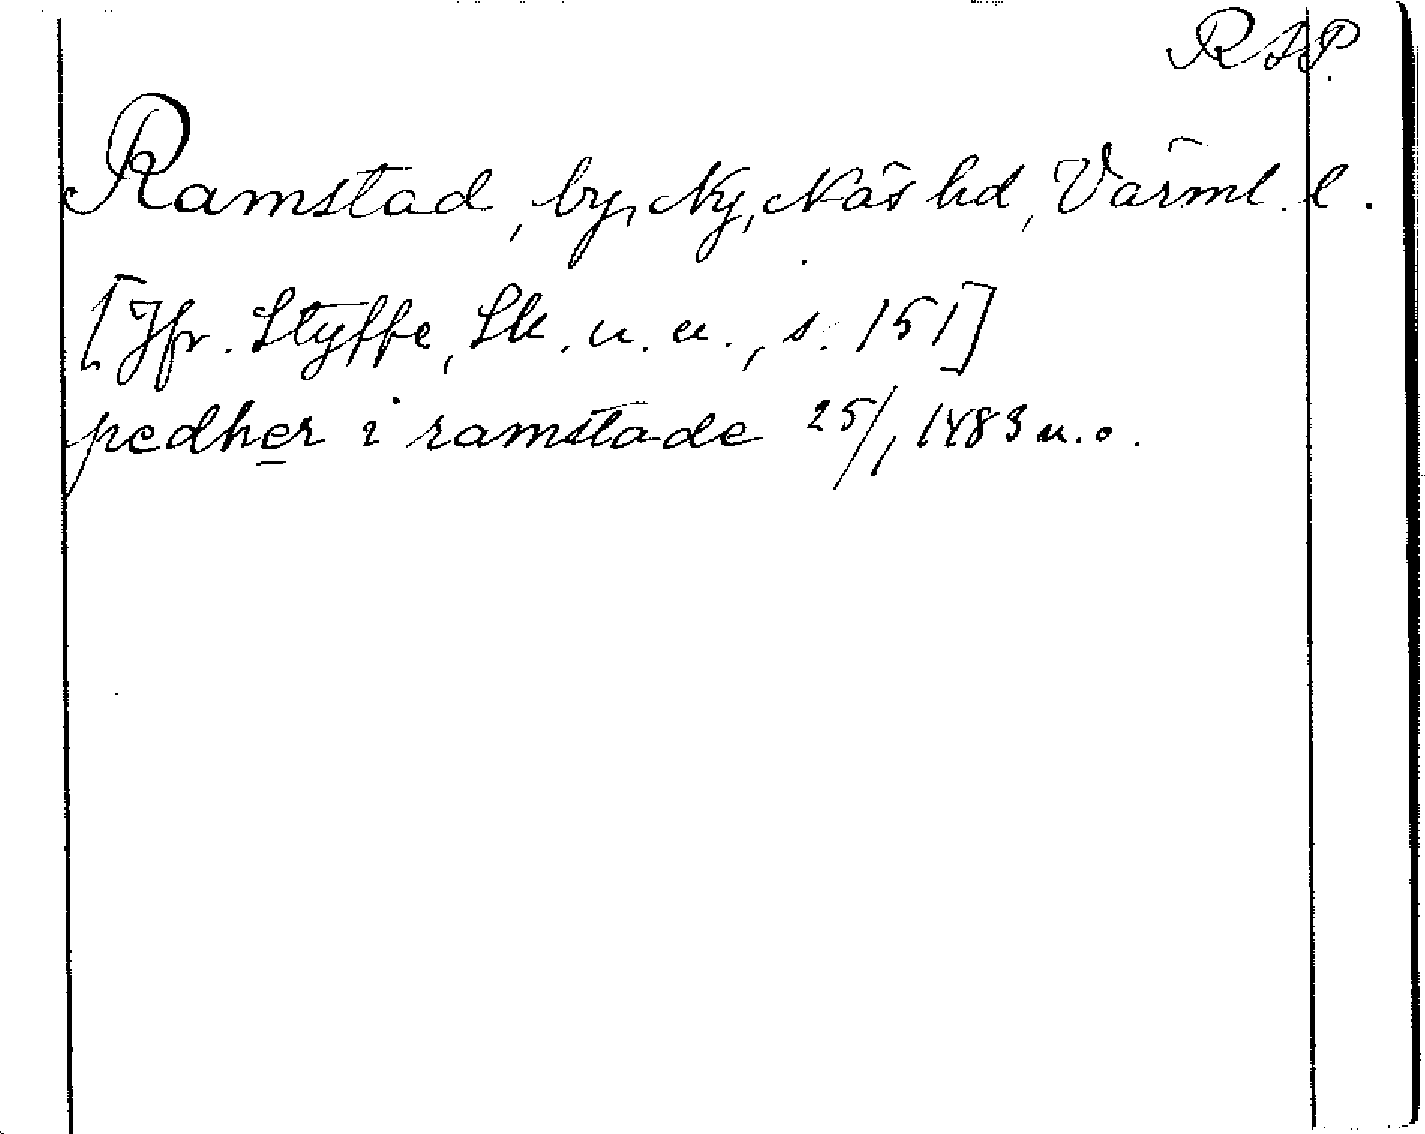 RAP.
Ramstad, by, Ny, Näs hd, Värml. l.
[Jfr. Styffe, Sk. u. u., s. 151]
pedher i ramstade 25/1 1483 u. o.